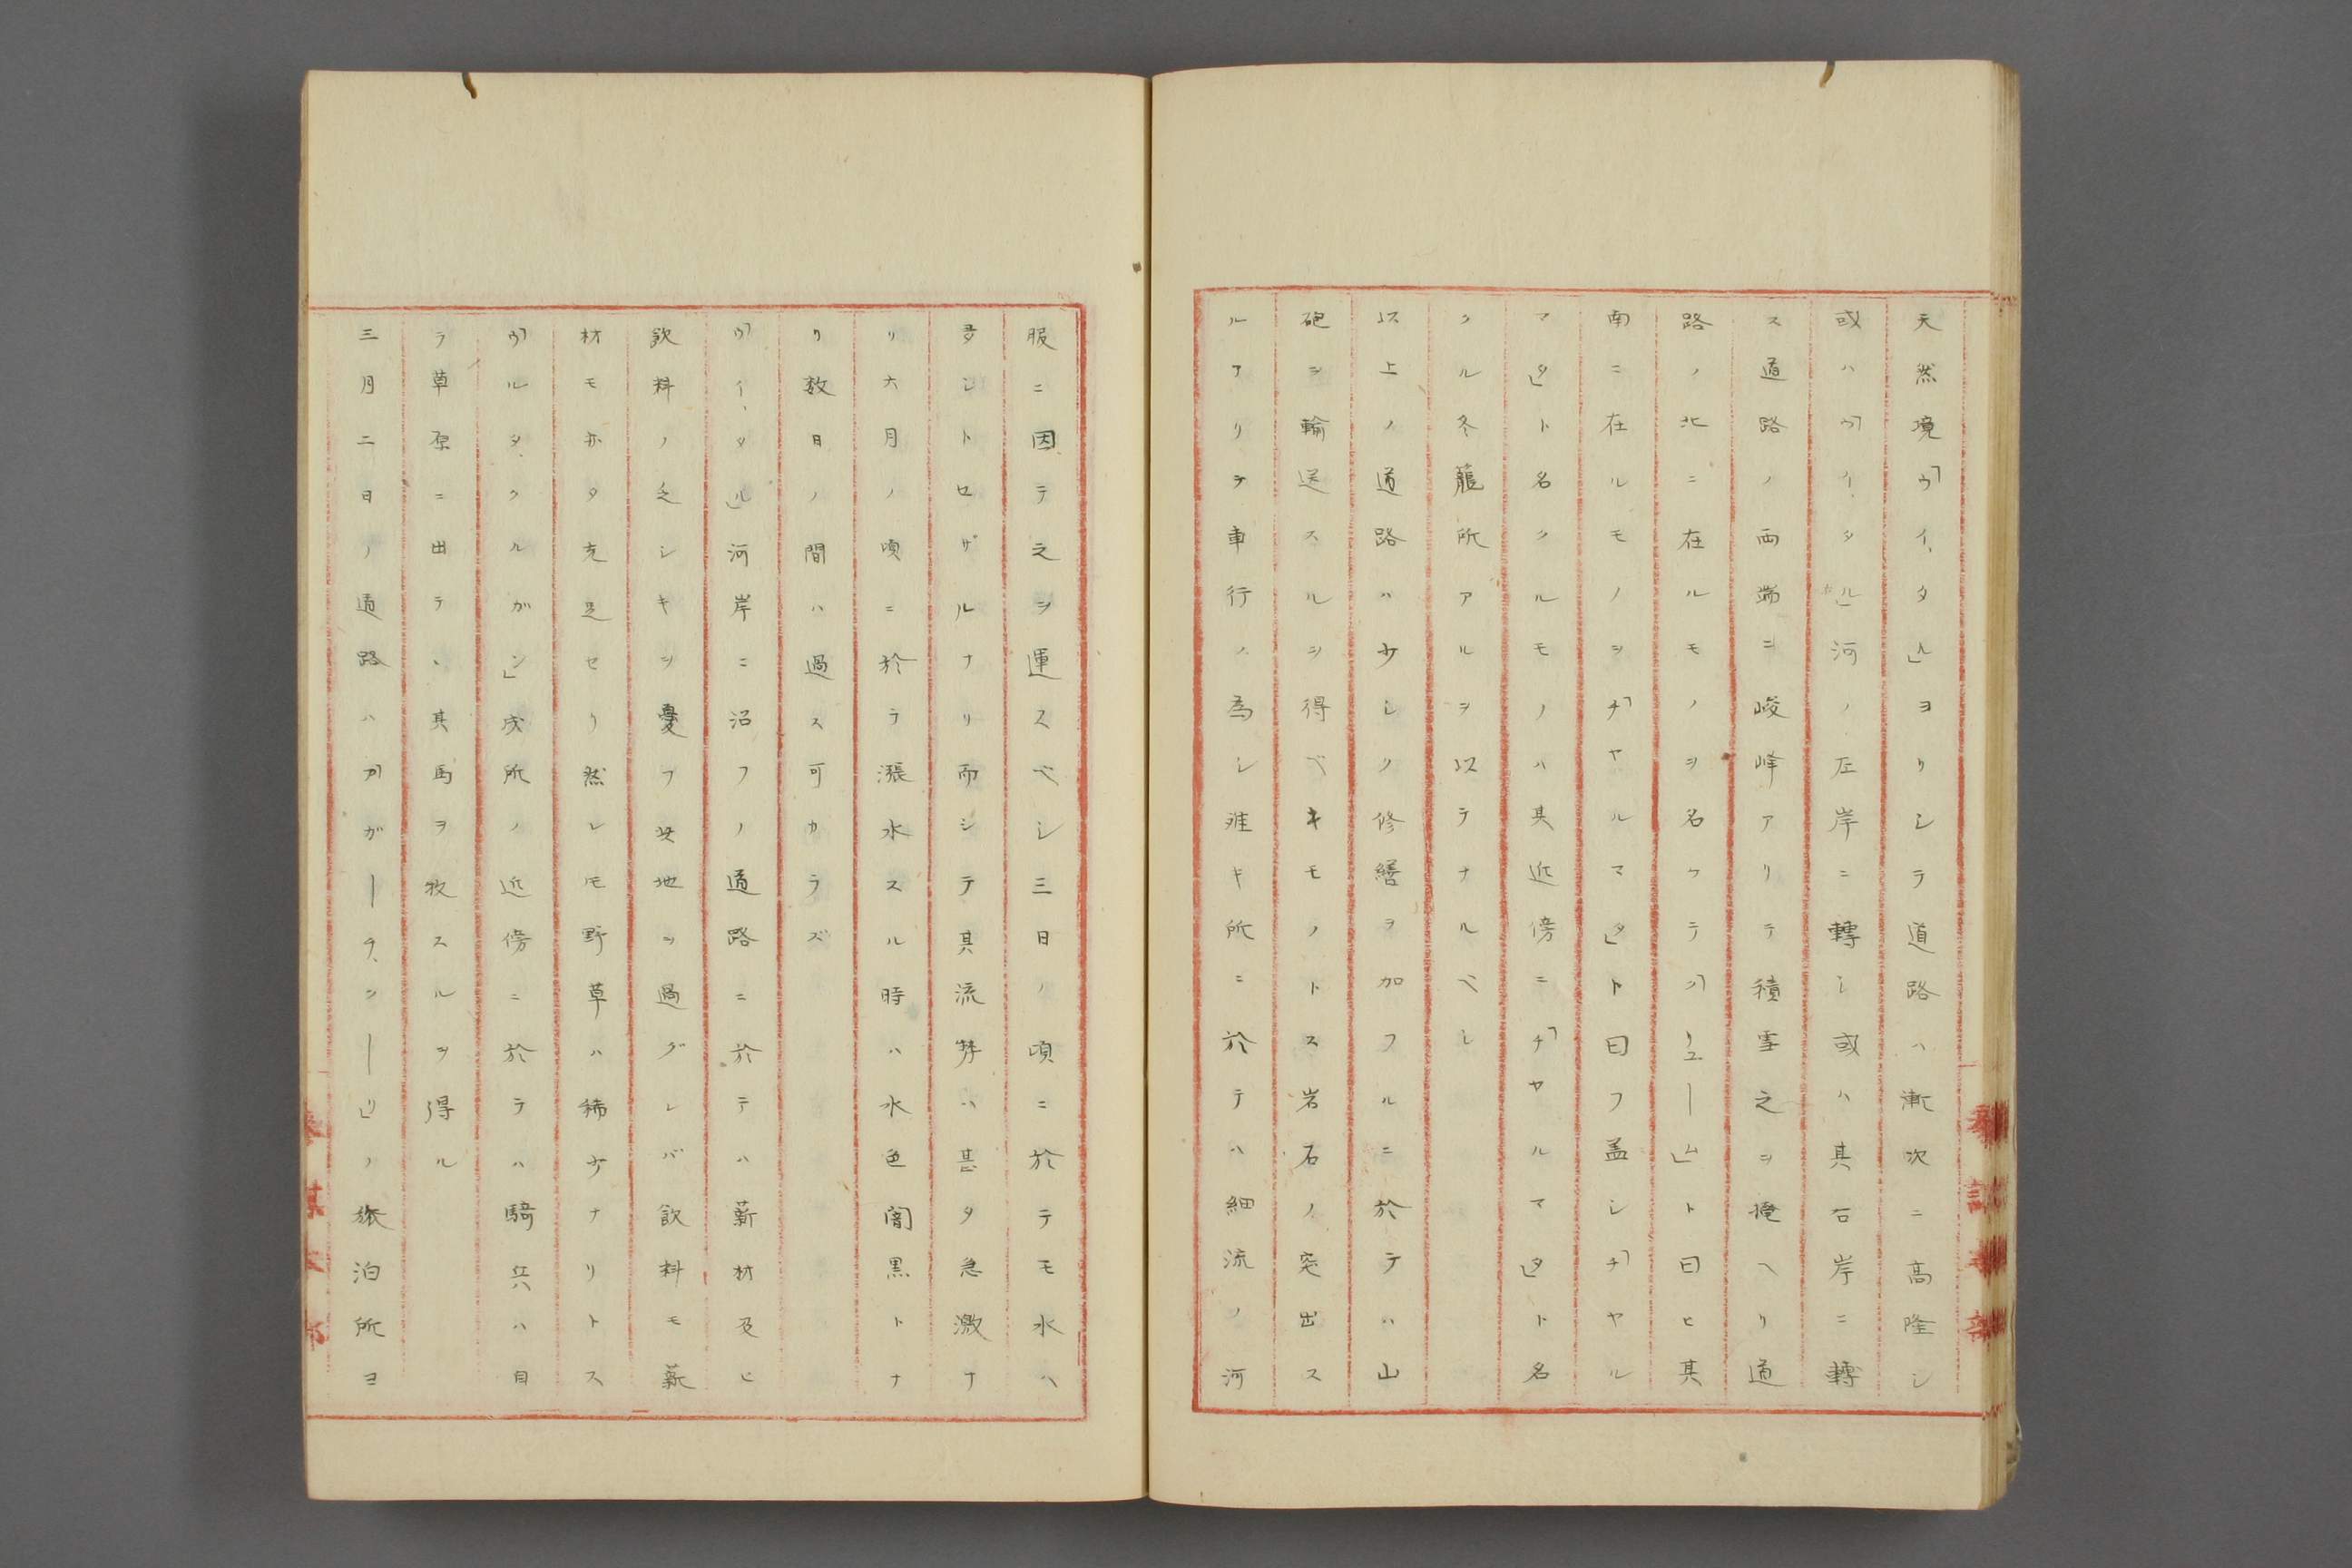 天然境「ウイ、タル」ヨリシテ道路ハ漸次ニ高隆シ
或ハ「ウイ、タル」河ノ左岸ニ轉シ或ハ其右岸ニ轉
ス道路ノ両端ニ峻峰アリテ積雪之ヲ掩ヘリ道
路ノ北ニ在ルモノヲ名ケテ「クリユーム」ト曰ヒ其
南ニ在ルモノヲ「チヤルマタ」ト曰フ盖シ「チヤル
マタ」ト名クルモノハ其近傍ニ「チヤルマタ」ト名
クル冬蘢所アルヲ以テナルベシ
以上ノ道路ハ少シク修繕ヲ加フルニ於テハ山
砲ヲ輸送スルヲ得ベキモノトス岩石ノ突出ス
ルアリテ車行ノ為シ難キ所ニ於テハ細流ノ河
服ニ因テ之ヲ運スベシ三日ノ頃ニ於テモ水ハ
多シトロザルナリ而シテ其流勢ハ甚タ急激ナ
リ六月ノ頃ニ於テ漲水スル時ハ水色闇黒トナ
リ数日ノ間ハ過ス可カラズ
「ウイ、タル」河岸ニ沿フノ道路ニ於テハ薪材及ヒ
飲料ノ乏シキヲ憂フ此地ヲ過グレバ飲料モ薪
材モ亦タ充足セリ然レモ野草ハ稀少ナリトス
「ウルタ、クルガン」戍所ノ近傍ニ於テハ騎兵ハ自
ラ草原ニ出テ、其馬ヲ牧スルヲ得ル
三月二日ノ道路ハ「カガーチ、シーリ」ノ旅泊所ヨ
参謀本部